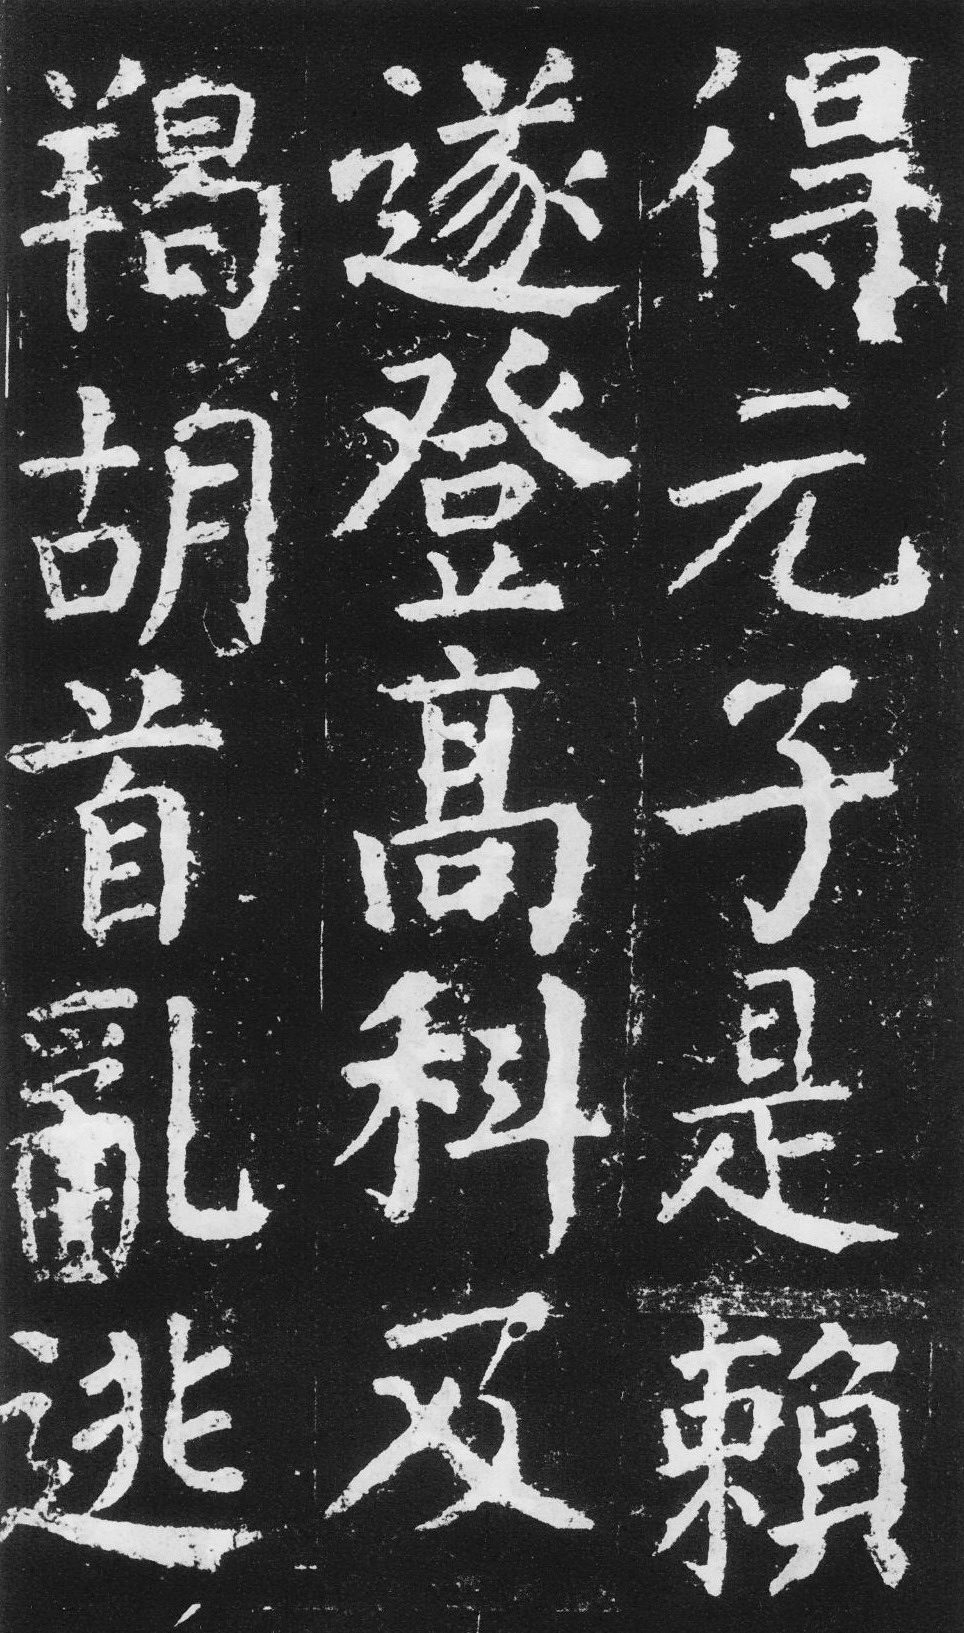 得元子是賴
遂登高科及
羯胡首亂逃